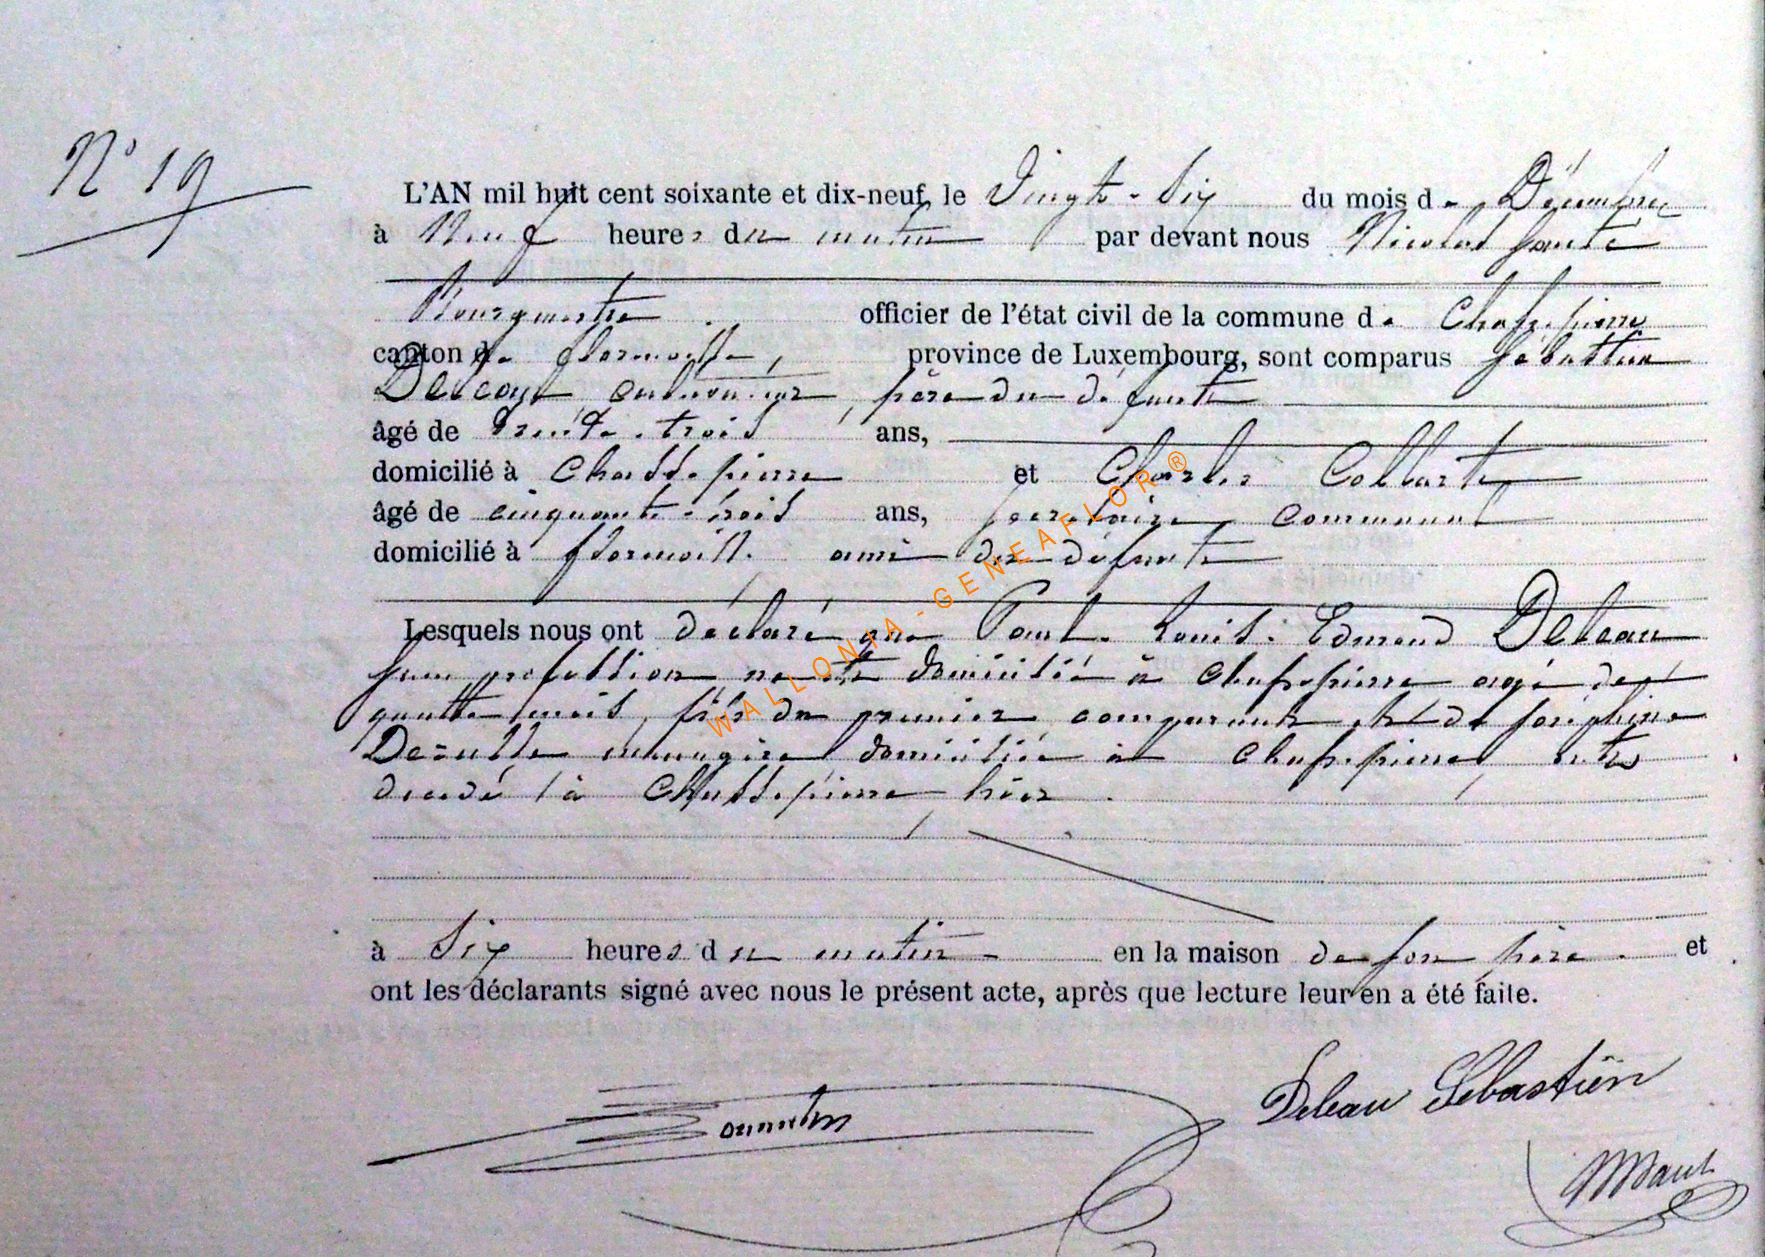 N° 19
L'AN mil huit cent soixante et dix-neuf, le Vingt-Six du mois de Décembre
à Neuf heures du matin par devant nous Nicolas
Bourgmestre officier de l'état civil de la commune de Chassepierre
canton de florenville, province de Luxembourg, sont comparus Sébastien
Deleau père du défunt
âgé de trente-trois ans,
domicilié à Chassepierre et Charles Collart
âgé de cinquante-trois ans, secrétaire communal
domicilié à florenville ami du défunt
Lesquels nous ont déclaré que Paul Louis Edmond Deleau
sans profession né et domicilié à Chassepierre agé de
quatre mois, fils du premier comparant et de joséphine
ménagère domiciliée à Chassepierre, est
décédé à Chassepierre hier
à Six heures du matin en la maison de son père et
ont les déclarants signé avec nous le présent acte, après que lecture leur en a été faite.
Deleau Sébastien
WALLONIA-GENEAFLOR®